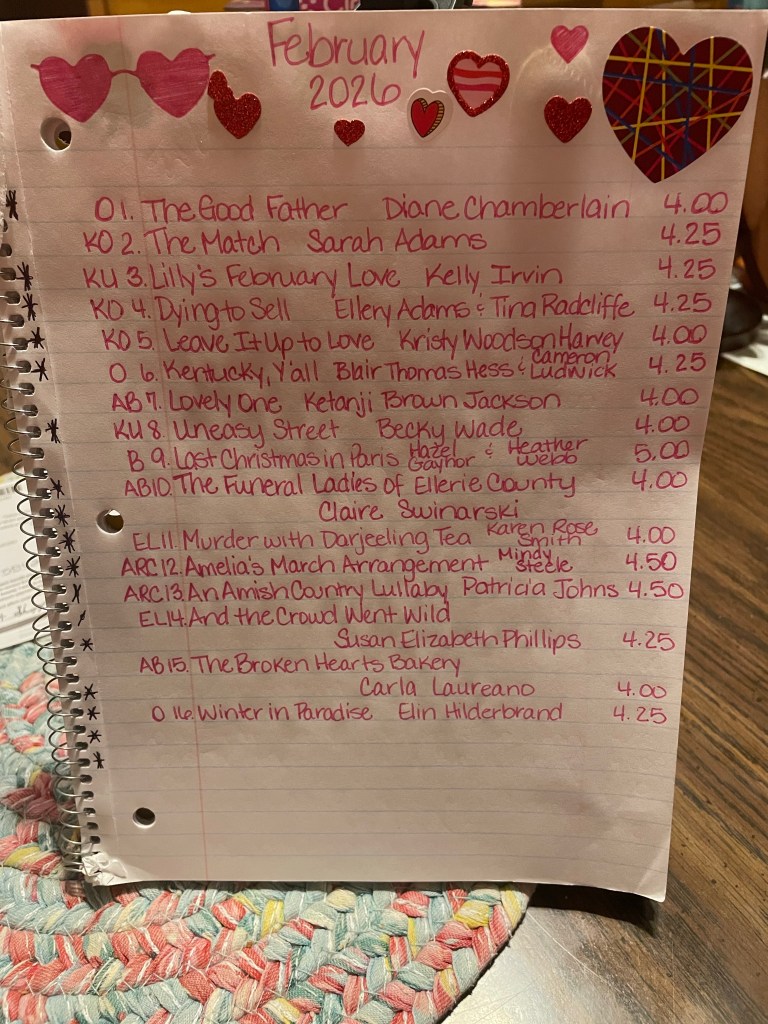 February
2026
O 1. The Good Father Diane Chamberlain 4.00
KO 2. The Match Sarah Adams 4.25
KU 3. Lilly's February Love Kelly Irvin 4.25
KO 4. Dying to Sell Ellery Adams & Tina Radcliffe 4.25
KO 5. Leave It Up to Love Kristy Woodson Harvey 4.00
O 6. Kentucky, Y'all Blair Thomas Hess & Cameron Ludwick 4.25
AB 7. Lovely One Ketanji Brown Jackson 4.00
KU 8. Uneasy Street Becky Wade 4.00
B 9. Last Christmas in Paris Hazel Gaynor & Heather Webb 5.00
AB 10. The Funeral Ladies of Ellerie County 4.00
Claire Swinarski
EL 11. Murder with Darjeeling Tea Karen Rose Smith 4.00
ARC 12. Amelia's March Arrangement Mindy Steele 4.50
ARC 13. An Amish Country Lullaby Patricia Johns 4.50
EL 14. And the Crowd Went Wild
Susan Elizabeth Phillips 4.25
AB 15. The Broken Hearts Bakery
Carla Laureano 4.00
O 16. Winter in Paradise Elin Hilderbrand 4.25